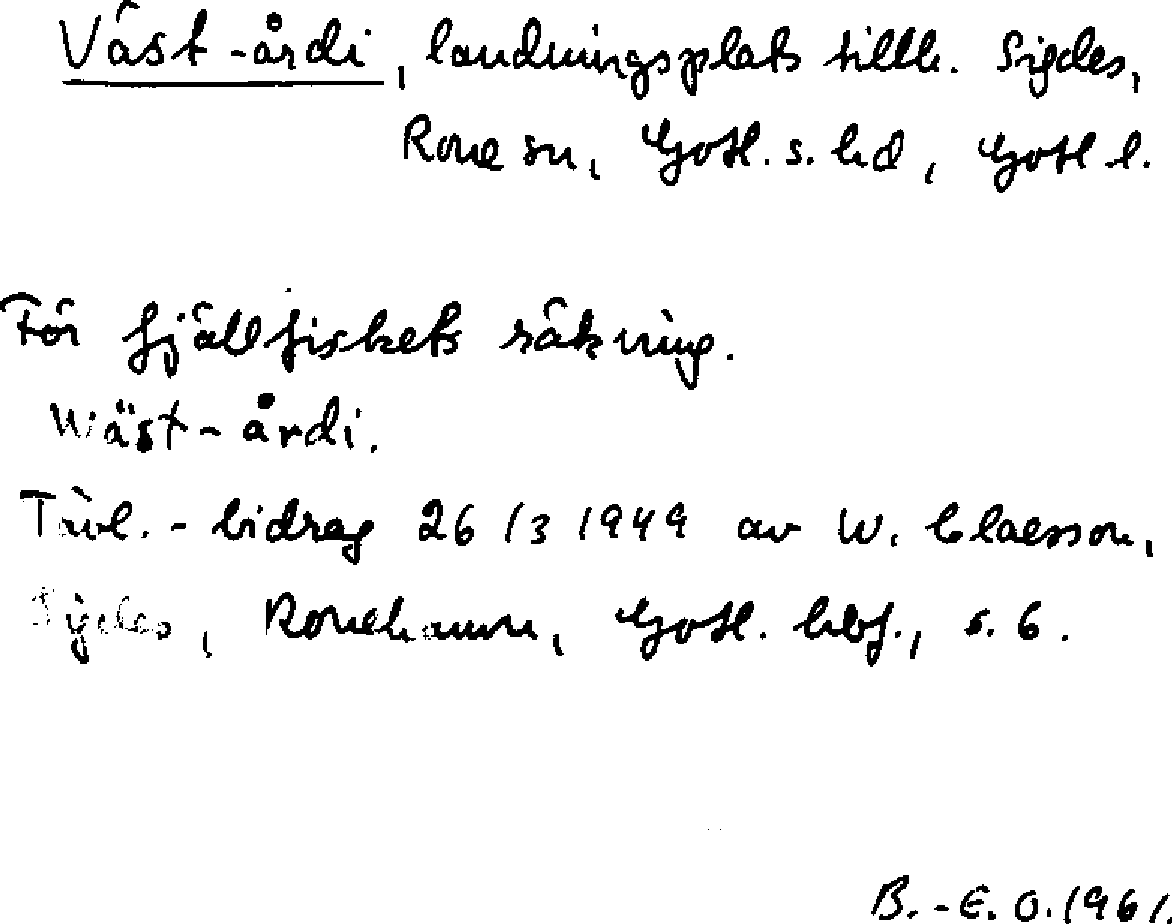 Väst-årdi, landningsplats tillh. Sigdes,
Rone sn, Gotl. s. hd, Gotl l.
För fjällfiskets räkning.
Wäst-årdi.
Tävl.-bidrag 26/3 1949 av W. Claesson,
Sigdes, Ronehamn, Gotl. hbf., s. 6.
B.-E. O. 1961.